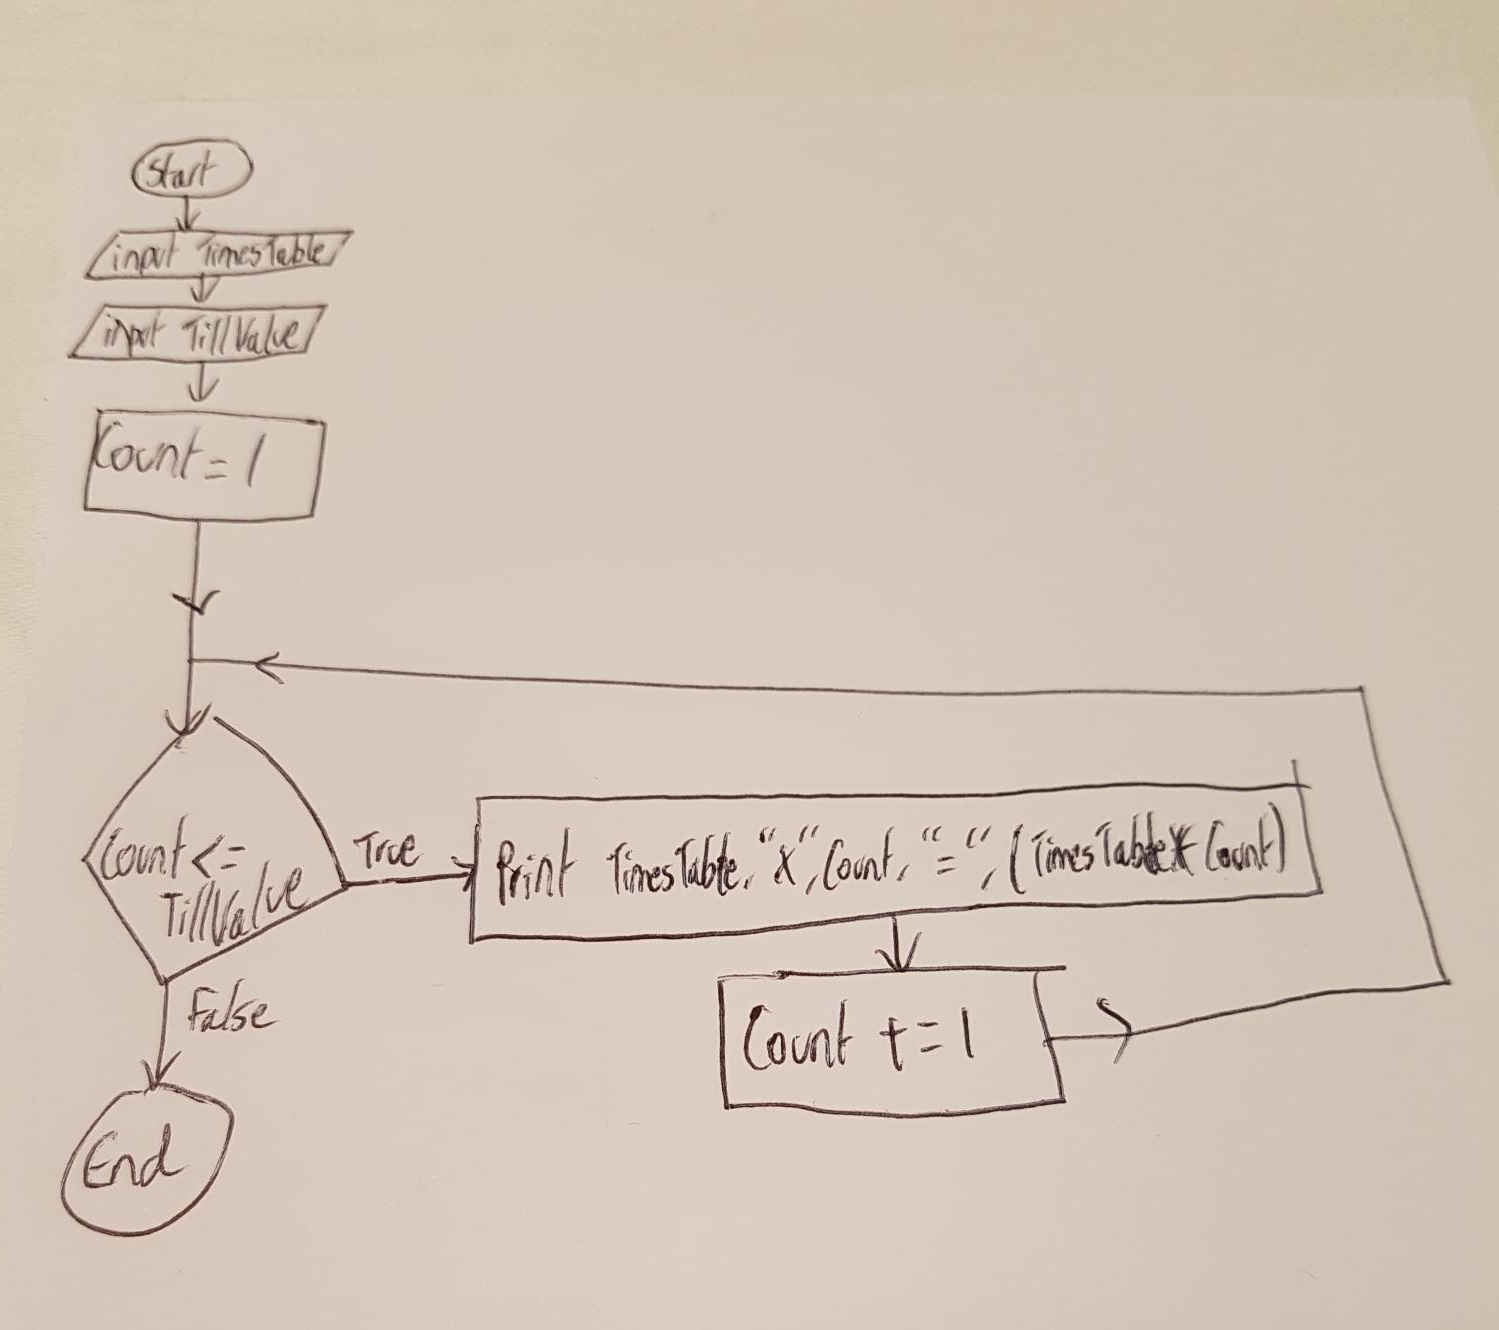 Start
input TimesTable
input TillValue
Count = 1
Count <=
TillValue
True
Print TimesTable, "x", Count, "=", (TimesTable * Count)
Count += 1
False
End